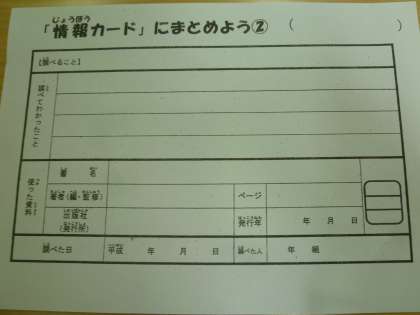 「情報カード」にまとめよう② （　　　）
じょうほう
【調べること】
調べてわかったこと
使った資料
書名
著者（編・監修） ページ
出版社（発行所） 発行年 年 月 日
調べた日 平成 年 月 日 調べた人 年 組